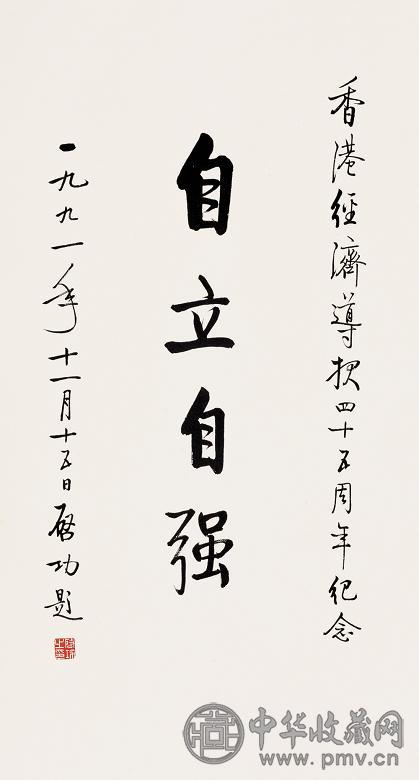 香港經濟導报四十五周年纪念
自立自强
一九九一年十一月十五日啓功题
中华收藏网
www.pmv.cn